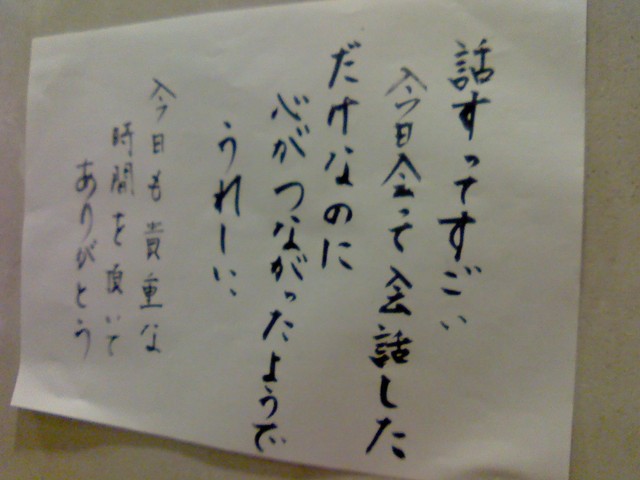 話すってすごい
今日会って会話した
だけなのに
心がつながったようで
うれしい、
今日も貴重な
時間を頂いて
ありがとう